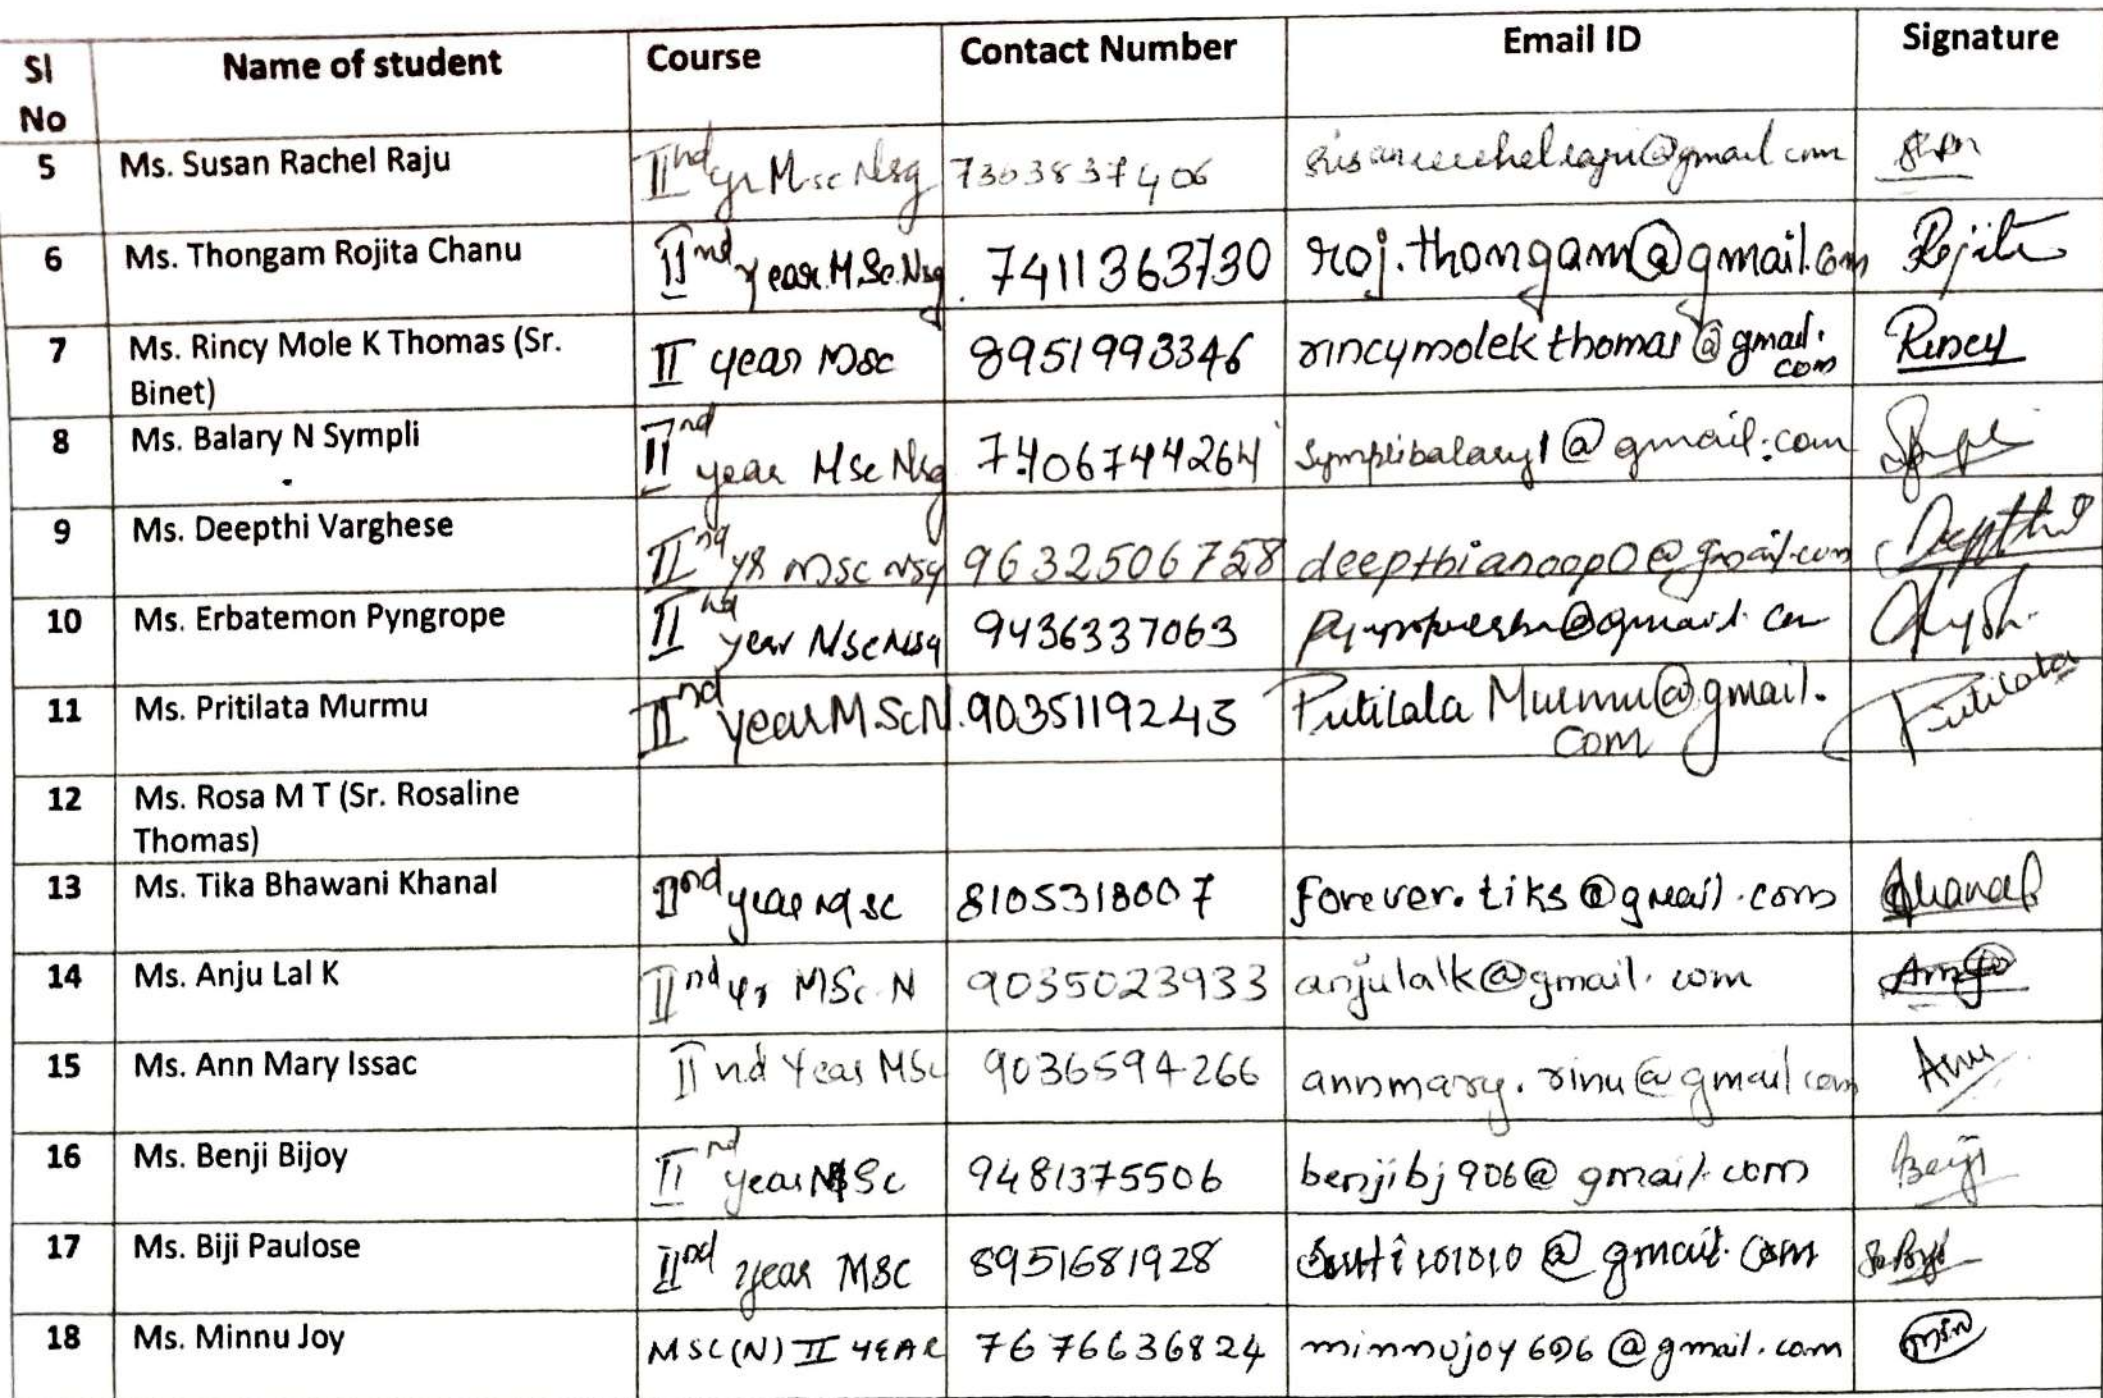 Sl No Name of student Course Contact Number Email ID Signature
5 Ms. Susan Rachel Raju IInd yr Msc Nsg 7303837406 @gmail com
6 Ms. Thongam Rojita Chanu IInd year M.Sc.Nsg. 7411363730 roj.thongam@gmail.com Rojita
7 Ms. Rincy Mole K Thomas (Sr. Binet) II year Msc 8951993346 rincymolekthomas@gmail.com Rincy
8 Ms. Balary N Sympli IInd year MSc Nsg 7406744264 symplibalary1@gmail.com
9 Ms. Deepthi Varghese IInd yr Msc Nsg 9632506758 deepthianoop0@gmail.com Deepthi
10 Ms. Erbatemon Pyngrope IInd year MSc Nsg 9436337063
11 Ms. Pritilata Murmu IInd year M.ScN. 9035119243 Pritilata Murmu@gmail.com Pritilata
12 Ms. Rosa M T (Sr. Rosaline Thomas)
13 Ms. Tika Bhawani Khanal IInd year Msc 8105318007 forever.tiks@gmail.com Khanal
14 Ms. Anju Lal K IInd yr MSc N 9035023933 anjulalk@gmail.com
15 Ms. Ann Mary Issac IInd Year MSc 9036594266 annmary.rinu@gmail com
16 Ms. Benji Bijoy IInd year MSc 9481375506 benjibj906@gmail.com Benji
17 Ms. Biji Paulose IInd year MSC 8951681928 @gmail.com
18 Ms. Minnu Joy MSC(N) II YEAR 7676636824 minnujoy696@gmail.com